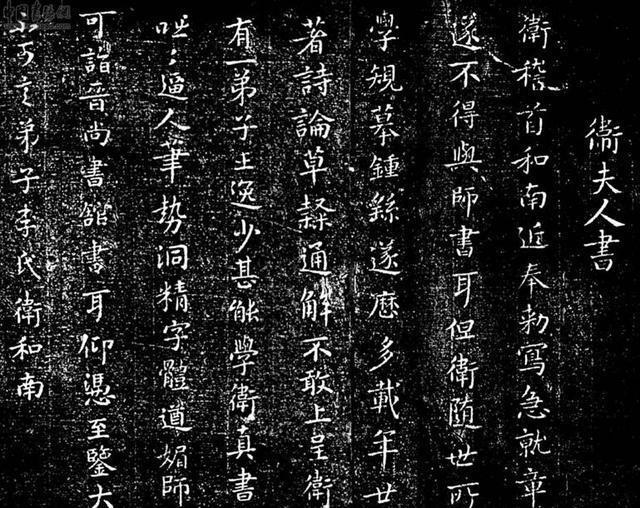 衞夫人書
衛稽首和南近奉勅寫急就章
遂不得與師書耳但衛隨世所
學規摹鍾繇遂歷多載年廿
著詩論草隸通解不敢上呈衛
有一弟子王逸少甚能學衛真書
咄〻逼人筆勢洞精字體遒媚師
可詣晉尚書館書耳仰憑至鑒大
不可言弟子李氏衛和南